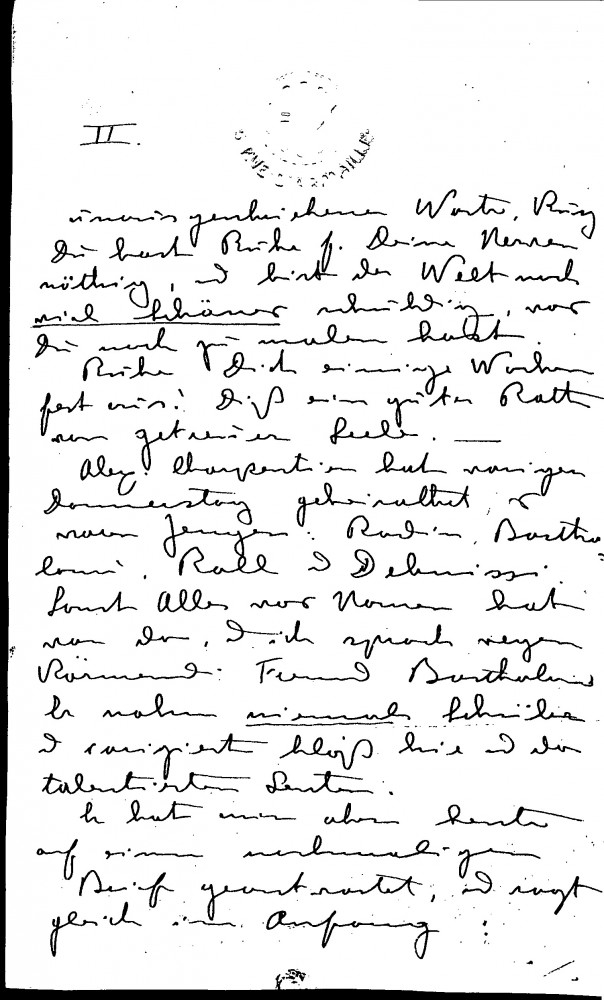 II.
5 RUE D'ARMAILLÉ
unausgeschriebenen Worte. Kurz
Du hast Ruhe f. Deine Nerven
nöthig, u bist der Welt noch
viel Schönes schuldig, was
Du noch zu malen hast.
Ruhe Dich einige Wochen
fest aus! Dieß ein guter Rath
von getreuer Seele. —
Alex. Charpentier hat vorigen
Donnerstag geheirathet, u
waren Zeugen: Rodin, Bartho=
lomé, Roll u Debussi.
Sonst Alles was Namen hat
war da, u ich sprach wegen
Freund Bartholomé
Er nahm niemals Schüler
u corrigiert bloß hie u da
talentierten Leuten.
Er hat mir aber heute
auf einen nochmaligen
Brief geantwortet, u sagt
gleich im Anfang :